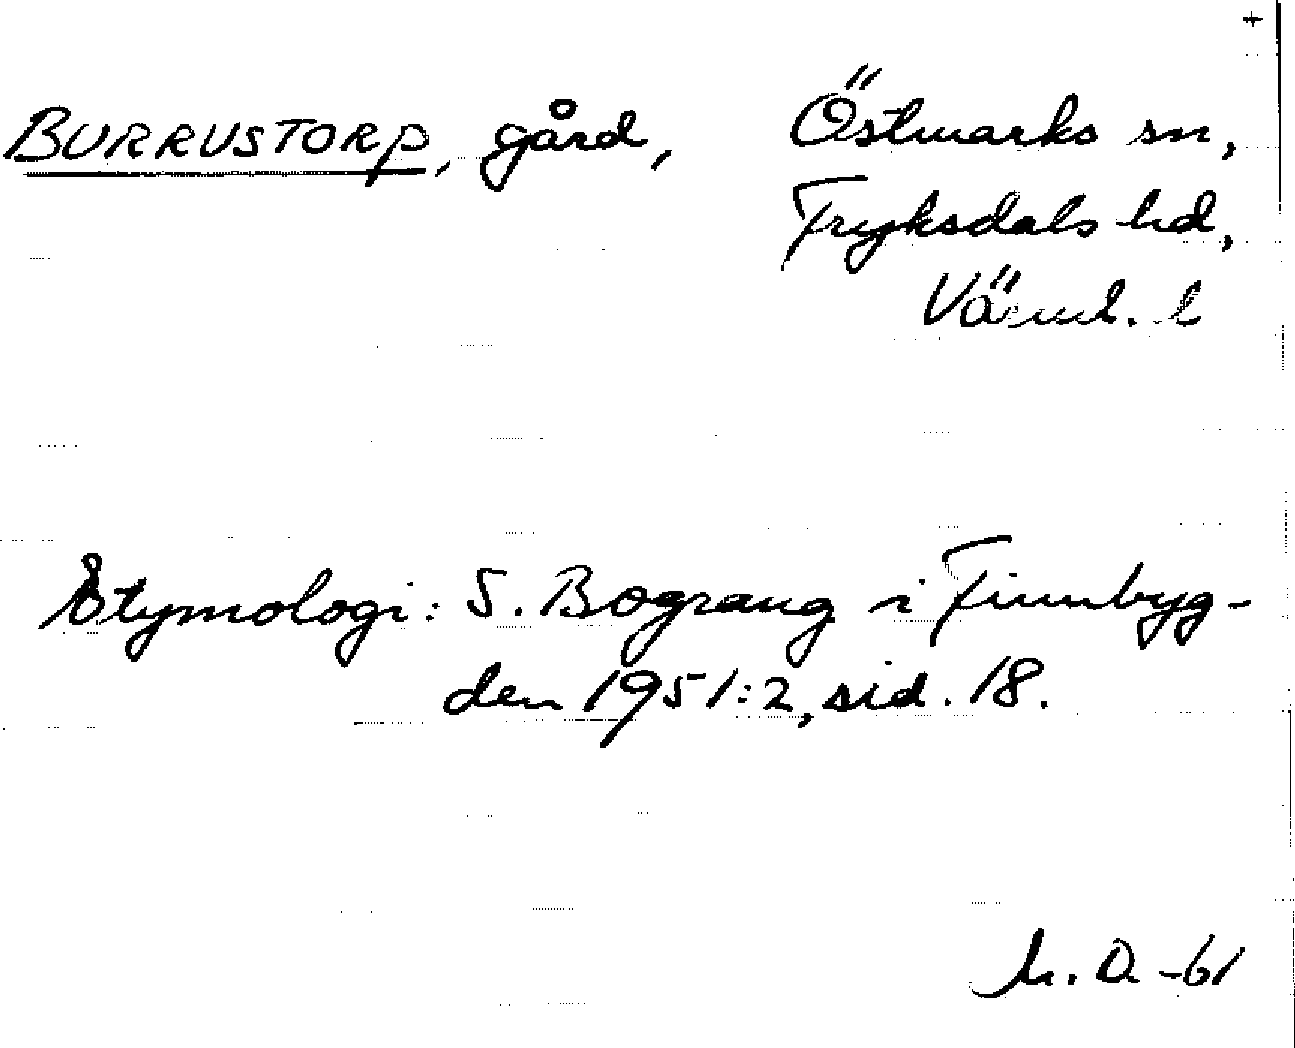 +
BURRUSTORP, gård, Östmarks sn,
Fryksdals hd,
Värml. l
Etymologi: S. Bograng i Finnbyg-
den 1951:2, sid. 18.
M. D. -61